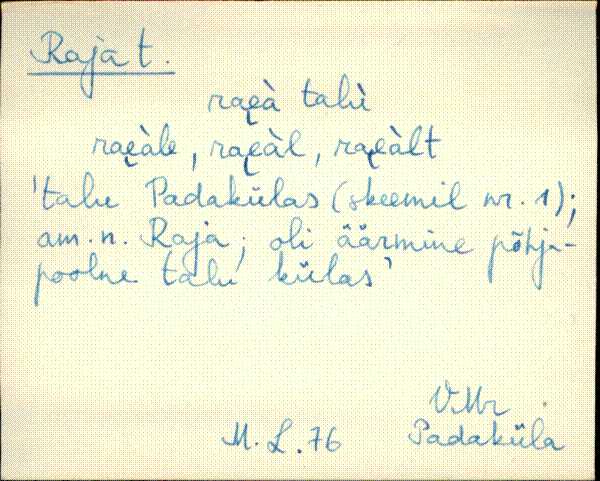 Raja t.
rae̮à talù
rae̮àle, rae̮àl, rae̮àlt
'talu Padakülas (skeemil nr. 1);
am.n. Raja; oli äärmine põhja-
poolne talu külas'
V.Mr
M.L.76 Padaküla